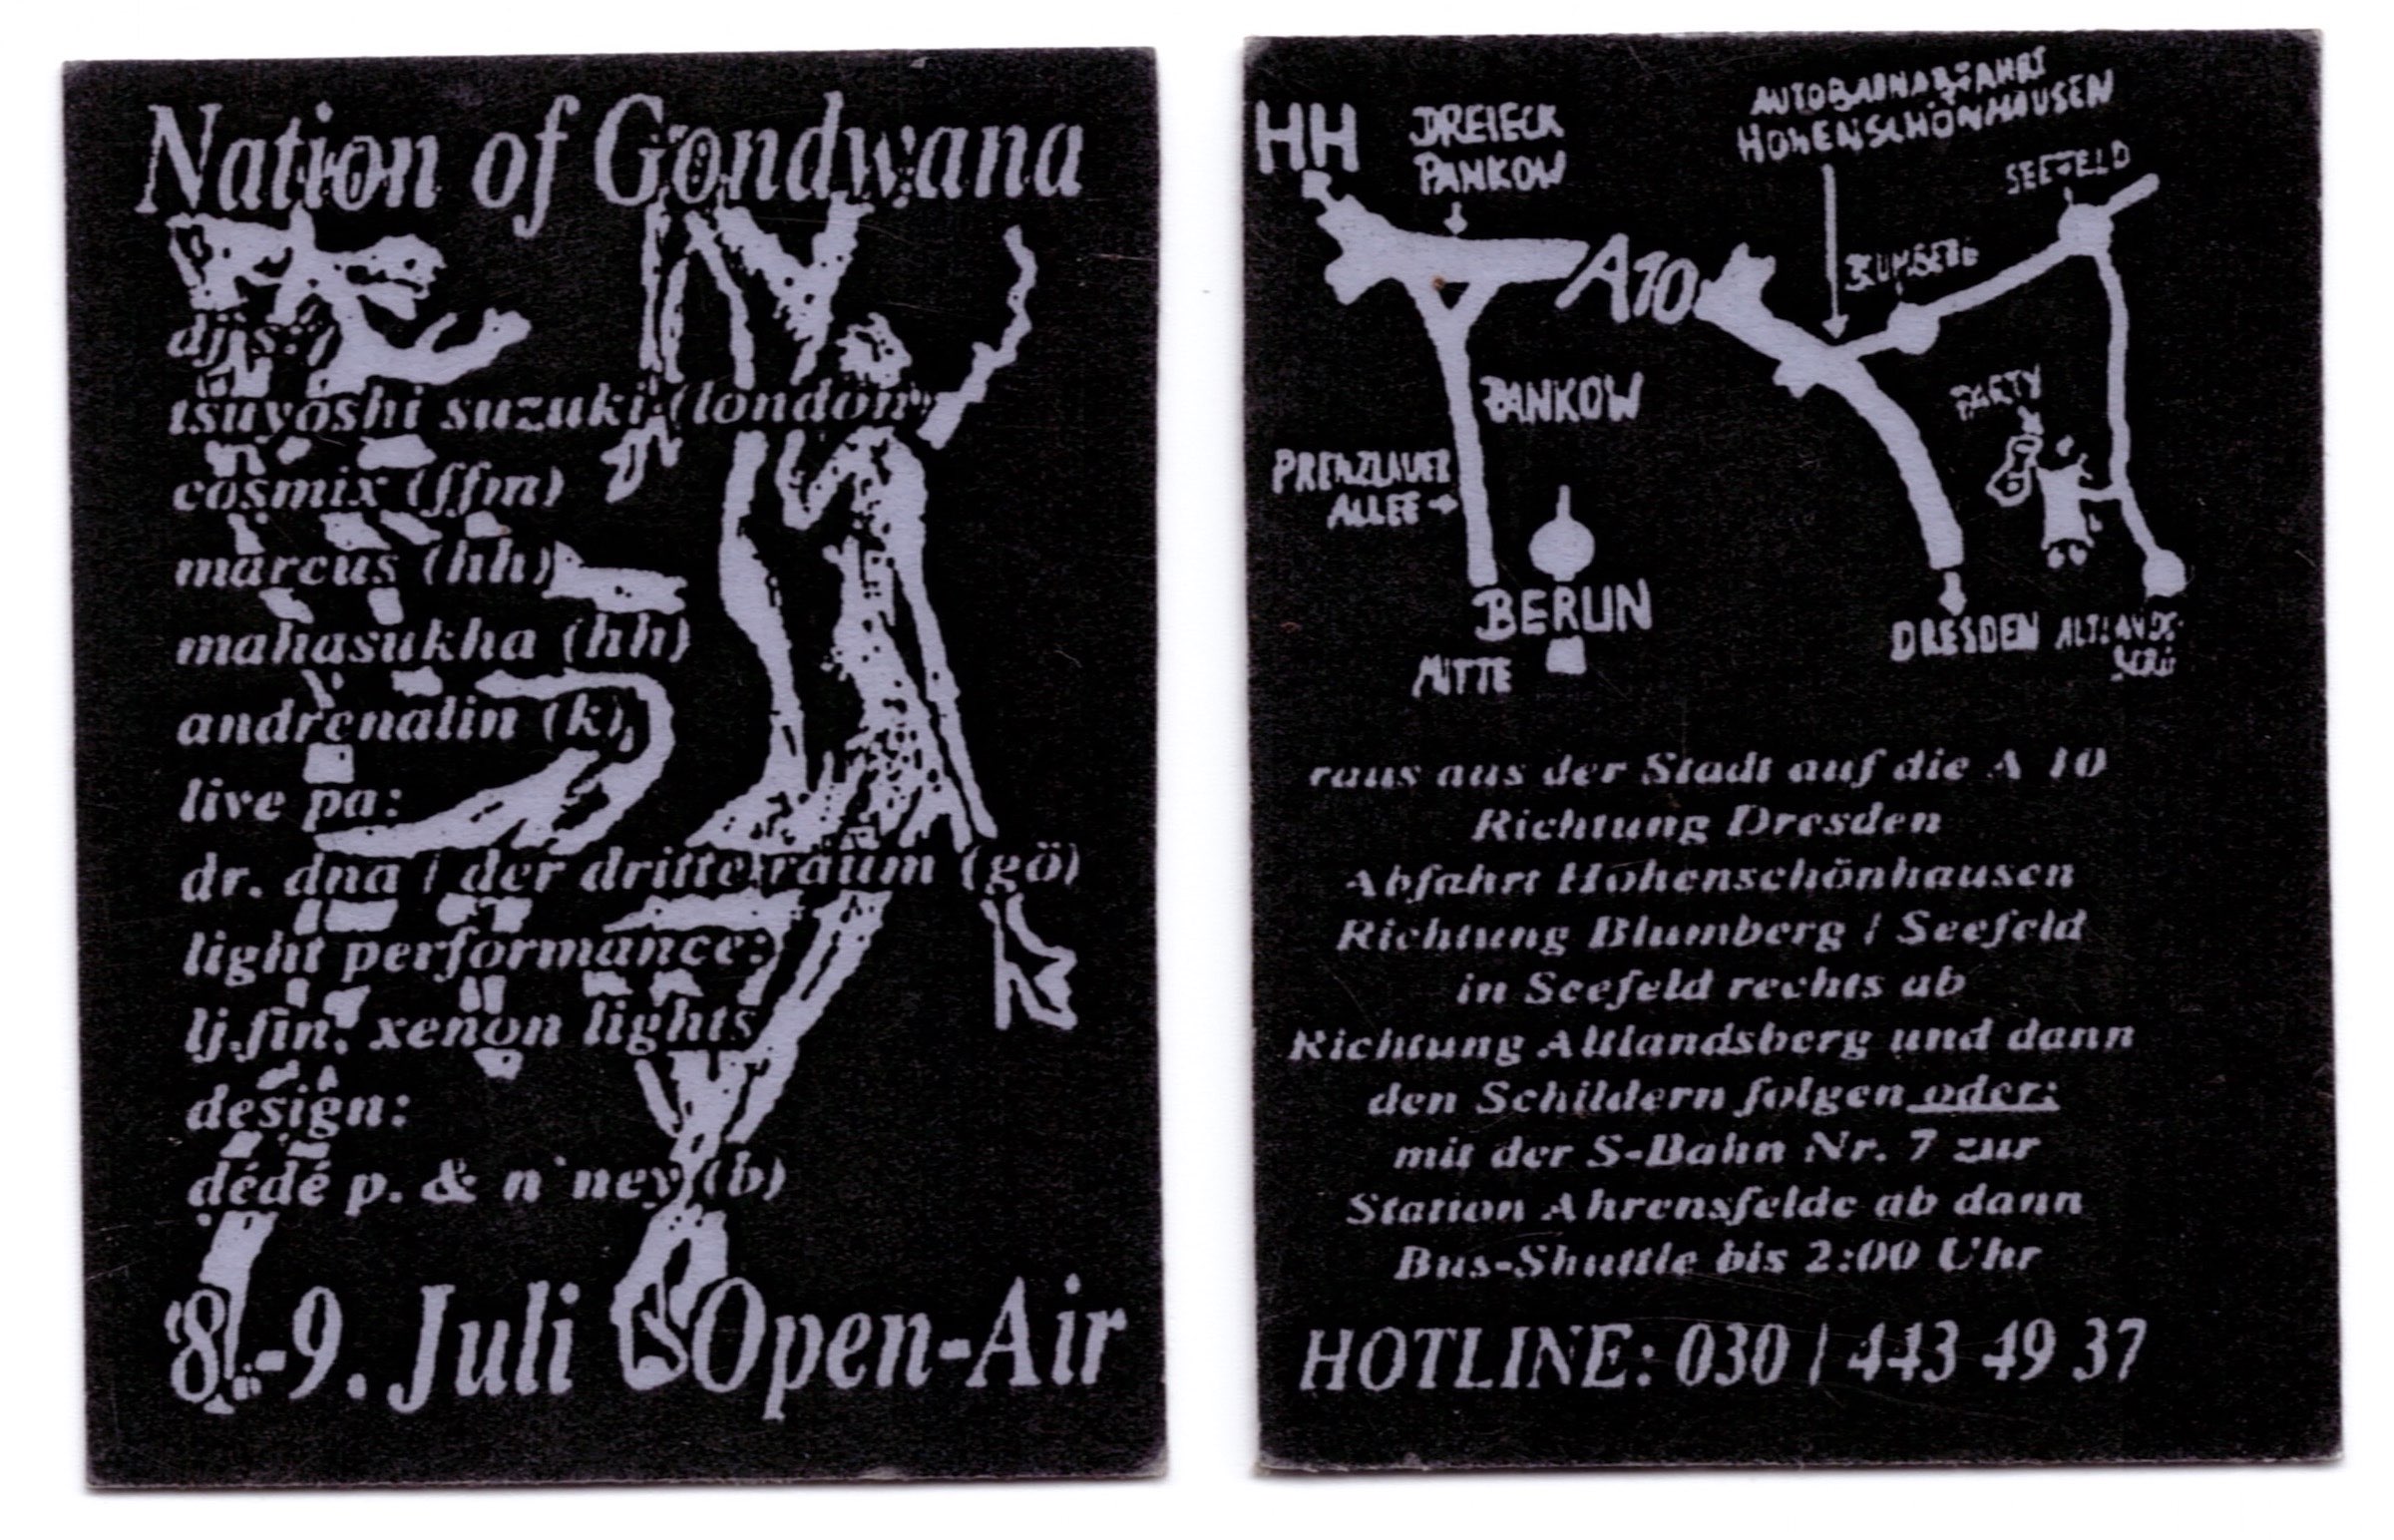 Nation of Gondwana
dj's:
tsuyoshi suzuki (london)
cosmix (ffm)
marcus (hh)
mahasukha (hh)
andrenalin (k)
live pa:
dr. dna / der dritte raum (gö)
light performance:
lj.fin, xenon lights
design:
dédé p. & n`ney (b)
8.-9. Juli Open-Air
HH
DREIECK
PANKOW
AUTOBAHNABFAHRT
HOHENSCHÖNHAUSEN
SEEFELD
A10
BLUMBERG
PANKOW
PARTY
PRENZLAUER
ALLEE
BERLIN
MITTE
DRESDEN
ALTLANDS-
BERG
raus aus der Stadt auf die A 10
Richtung Dresden
Abfahrt Hohenschönhausen
Richtung Blumberg / Seefeld
in Seefeld rechts ab
Richtung Altlandsberg und dann
den Schildern folgen oder:
mit der S-Bahn Nr. 7 zur
Station Ahrensfelde ab dann
Bus-Shuttle bis 2:00 Uhr
HOTLINE: 030 / 443 49 37